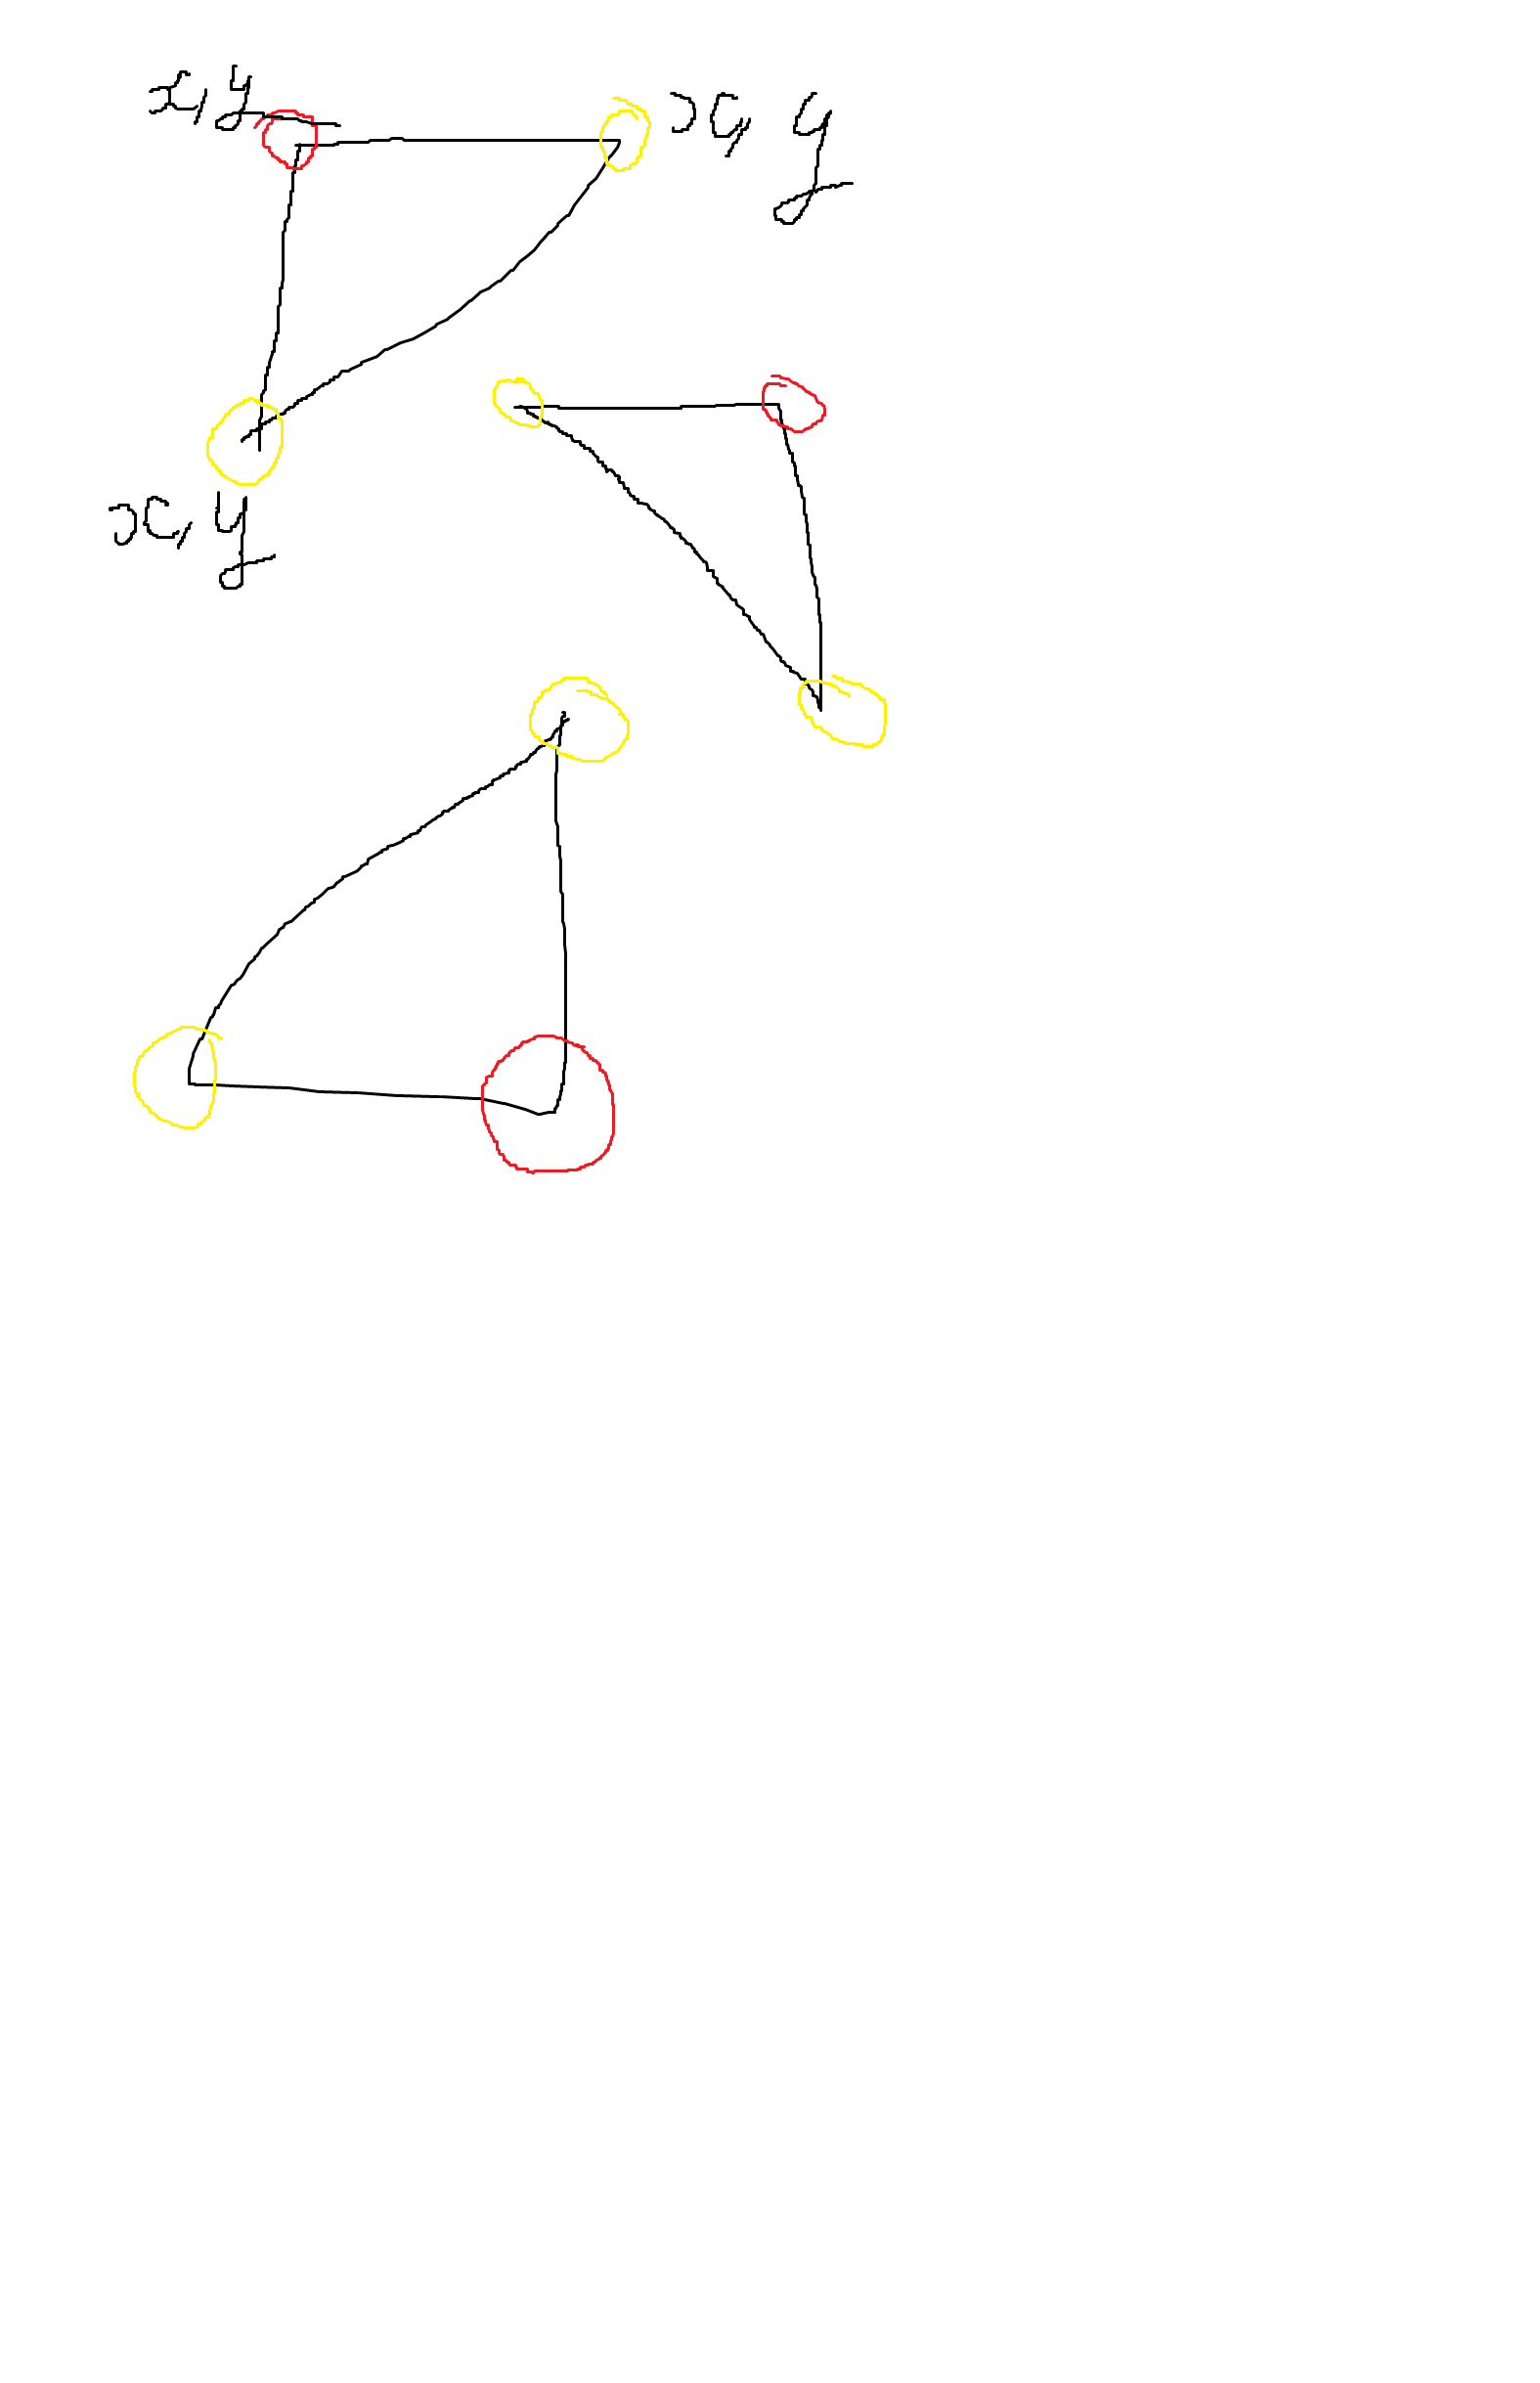 x, y
x, y
x, y